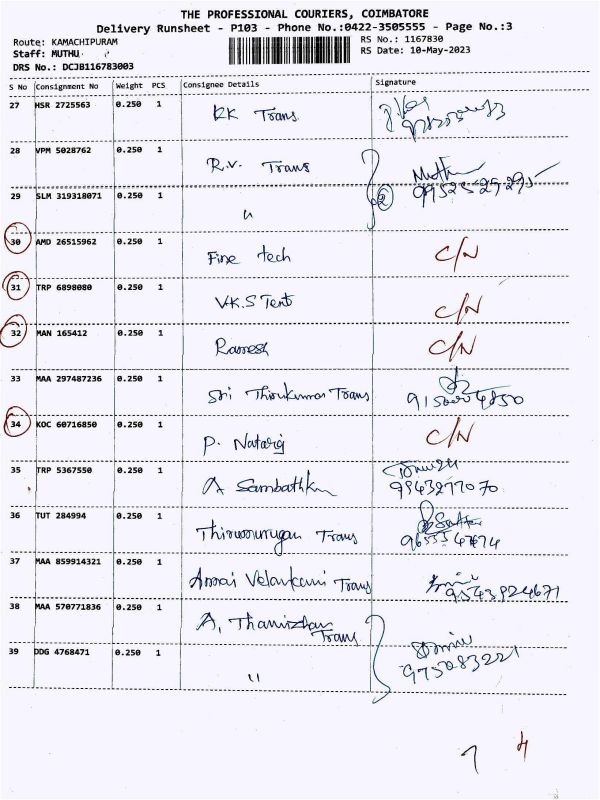 THE PROFESSIONAL COURIERS, COIMBATORE
Delivery Runsheet - P103 - Phone No.:0422-3505555 - Page No.:3
Route: KAMACHIPURAM
Staff: MUTHU
DRS No.: DCJB116783003
RS No.: 1167830
RS Date: 10-May-2023
S No Consignment No Weight PCS Consignee Details Signature
27 HSR 2725563 0.250 1 KK Trans
28 VPM 5028762 0.250 1 R.V. Trans Muthu
29 SLM 319318071 0.250 1 " 2 99525 29295
30 AMD 26515962 0.250 1 Fine tech C/N
31 TRP 6898080 0.250 1 V.K.S Tent C/N
32 MAN 165412 0.250 1 Ramesh C/N
33 MAA 297487236 0.250 1 Sri Thirukumar Trans
34 KOC 60716850 0.250 1 P. Nataraj C/N
35 TRP 5367550 0.250 1 A Sambathku 9943277070
36 TUT 284994 0.250 1 Thirumurugan Trans
37 MAA 859914321 0.250 1 Annai Velankani Trans 9543924671
38 MAA 570771836 0.250 1 A. Thamizhan Trans
39 DDG 4768471 0.250 1 " 975083221
7 4